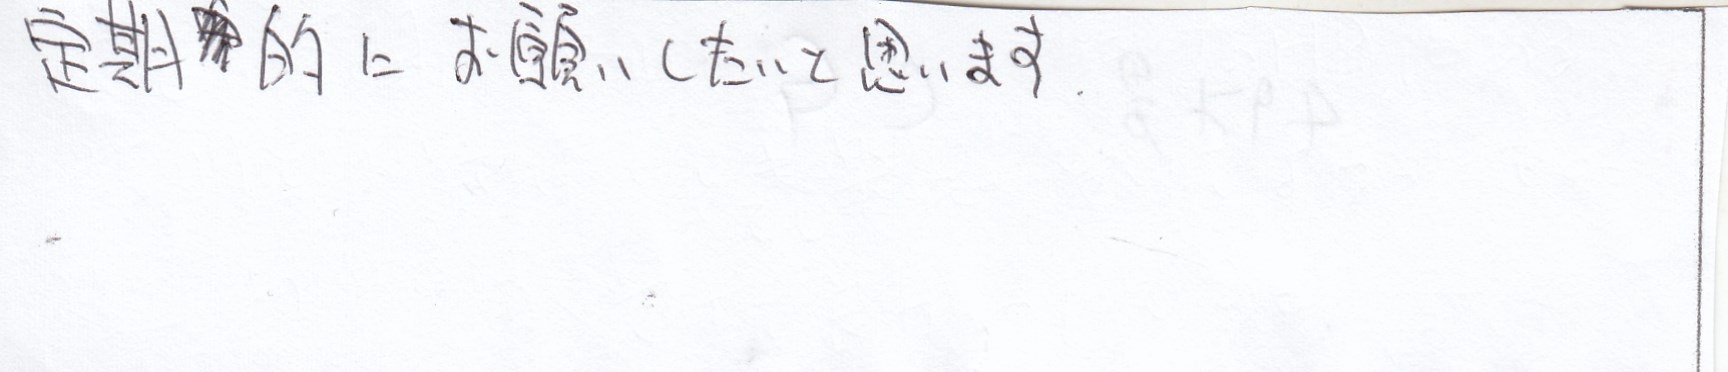 定期的にお願いしたいと思います.